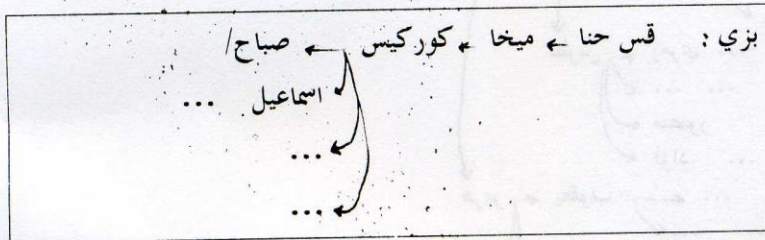 بزي : قس حنا ← ميخا ← كوركيس ← صباح/
اسماعيل ...
...
...